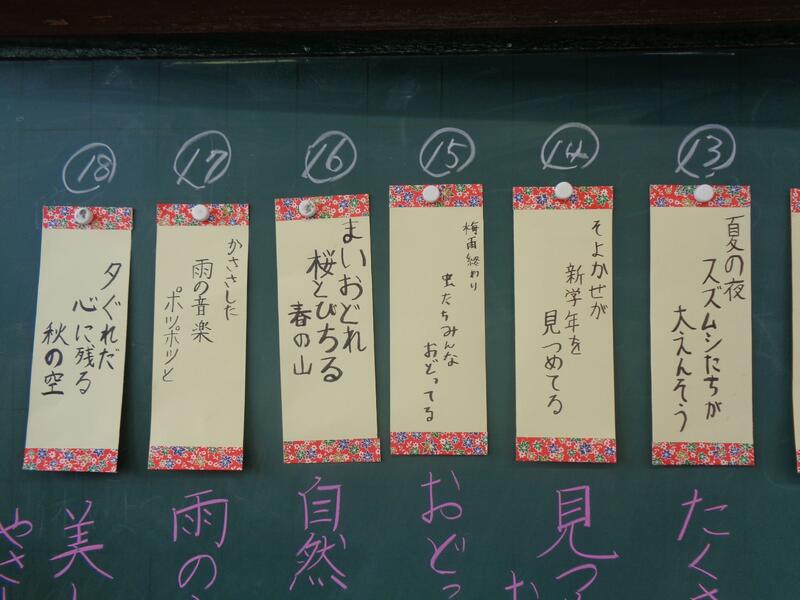 ⑬
夏の夜
スズムシたちが
大えんそう
たくさ
⑭
そよかせが
新学年を
見つめてる
見つ
お
⑮
梅雨終わり
虫たちみんな
おどってる
おどっ
⑯
まいおどれ
桜とびちる
春の山
自然
⑰
かささした
雨の音楽
ポツポツと
雨の
⑱
夕ぐれだ
心に残る
秋の空
美し
やさし